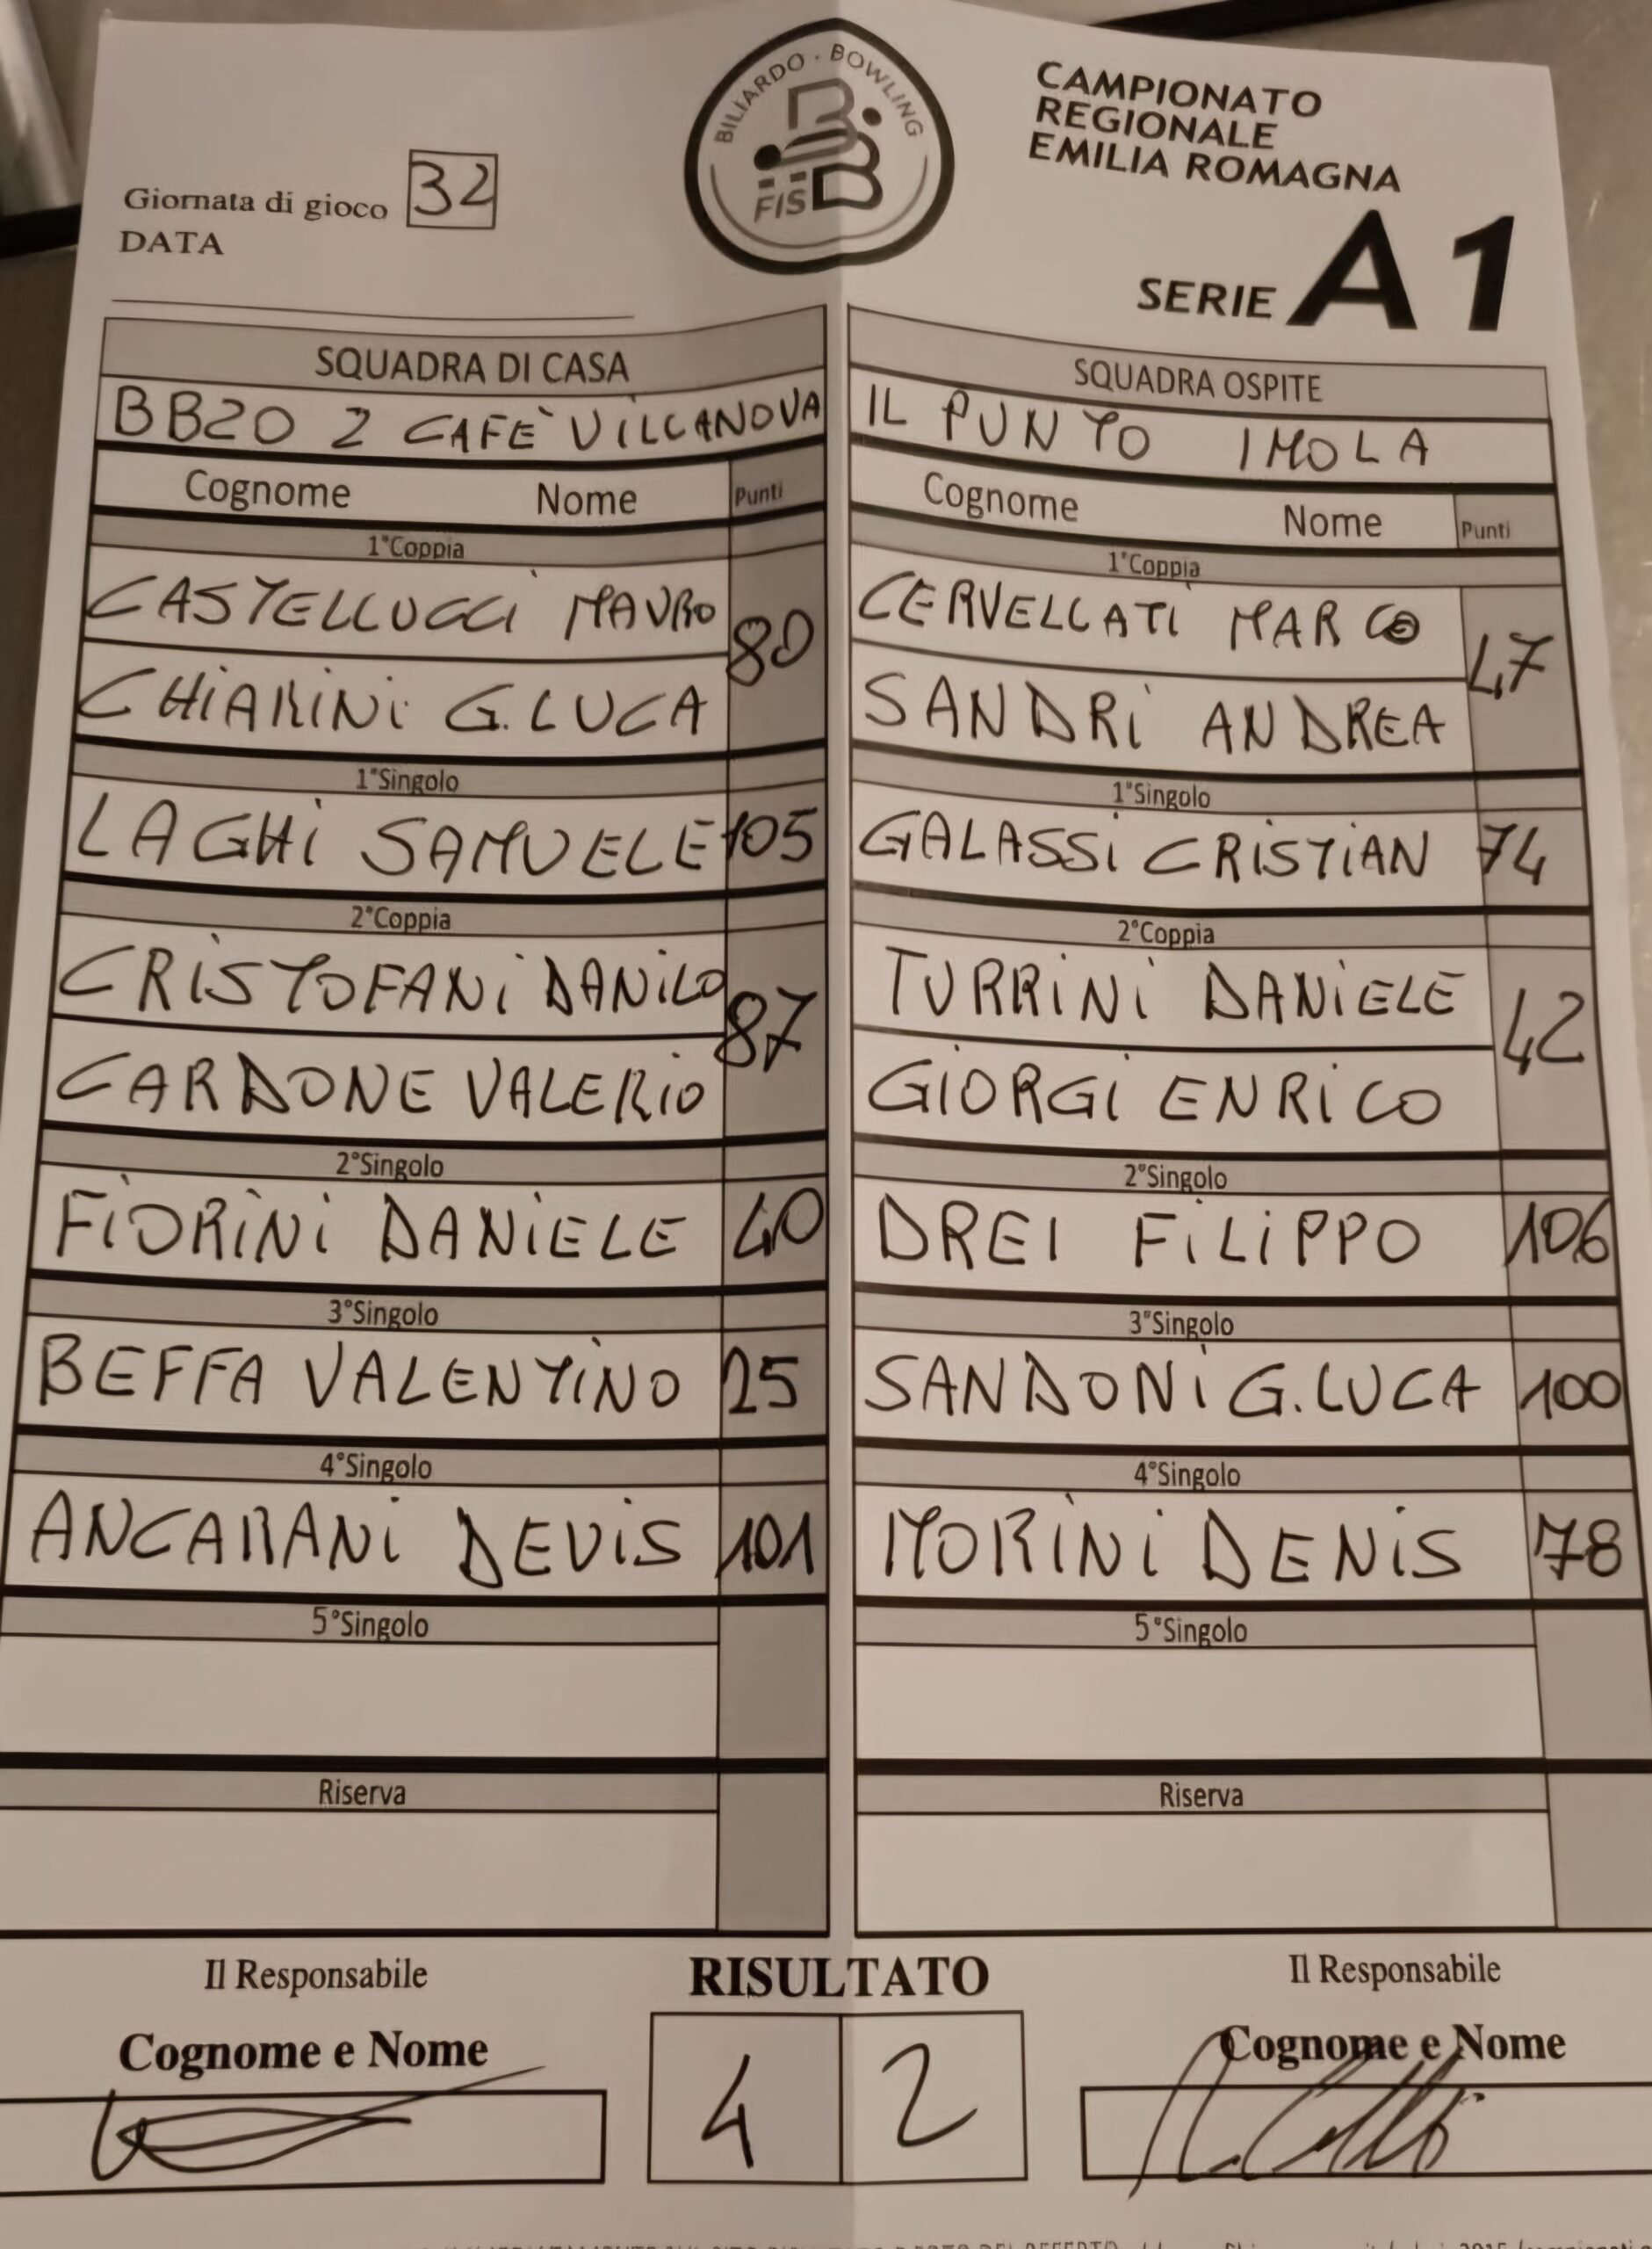 BILIARDO · BOWLING
FISBB
CAMPIONATO
REGIONALE
EMILIA ROMAGNA
SERIE A1
Giornata di gioco 32
DATA
SQUADRA DI CASA
BB20 2 CAFÈ VILLANOVA
Cognome Nome Punti
1°Coppia
CASTELLUCCI MAURO
80
CHIARINI G.LUCA
1°Singolo
LAGHI SAMUELE 105
2°Coppia
CRISTOFANI DANILO
87
CARDONE VALERIO
2°Singolo
FIORINI DANIELE 40
3°Singolo
BEFFA VALENTINO 25
4°Singolo
ANCARANI DEVIS 101
5°Singolo
Riserva
SQUADRA OSPITE
IL PUNTO IMOLA
Cognome Nome Punti
1°Coppia
CERVELLATI MARCO
47
SANDRI ANDREA
1°Singolo
GALASSI CRISTIAN 74
2°Coppia
TURRINI DANIELE
42
GIORGI ENRICO
2°Singolo
DREI FILIPPO 106
3°Singolo
SANDONI G.LUCA 100
4°Singolo
MORINI DENIS 78
5°Singolo
Riserva
Il Responsabile
Cognome e Nome
RISULTATO
4 2
Il Responsabile
Cognome e Nome